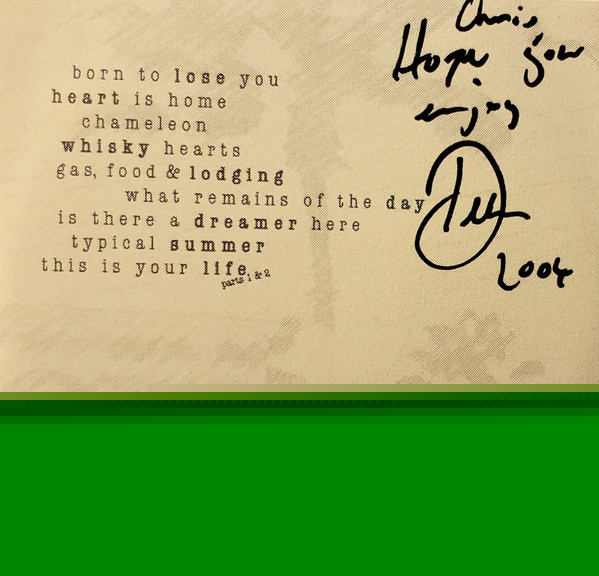 born to lose you
heart is home
chameleon
whisky hearts
gas, food & lodging
what remains of the day
is there a dreamer here
typical summer
this is your life
parts 1 & 2
Chris
Hope you
enjoy
2004